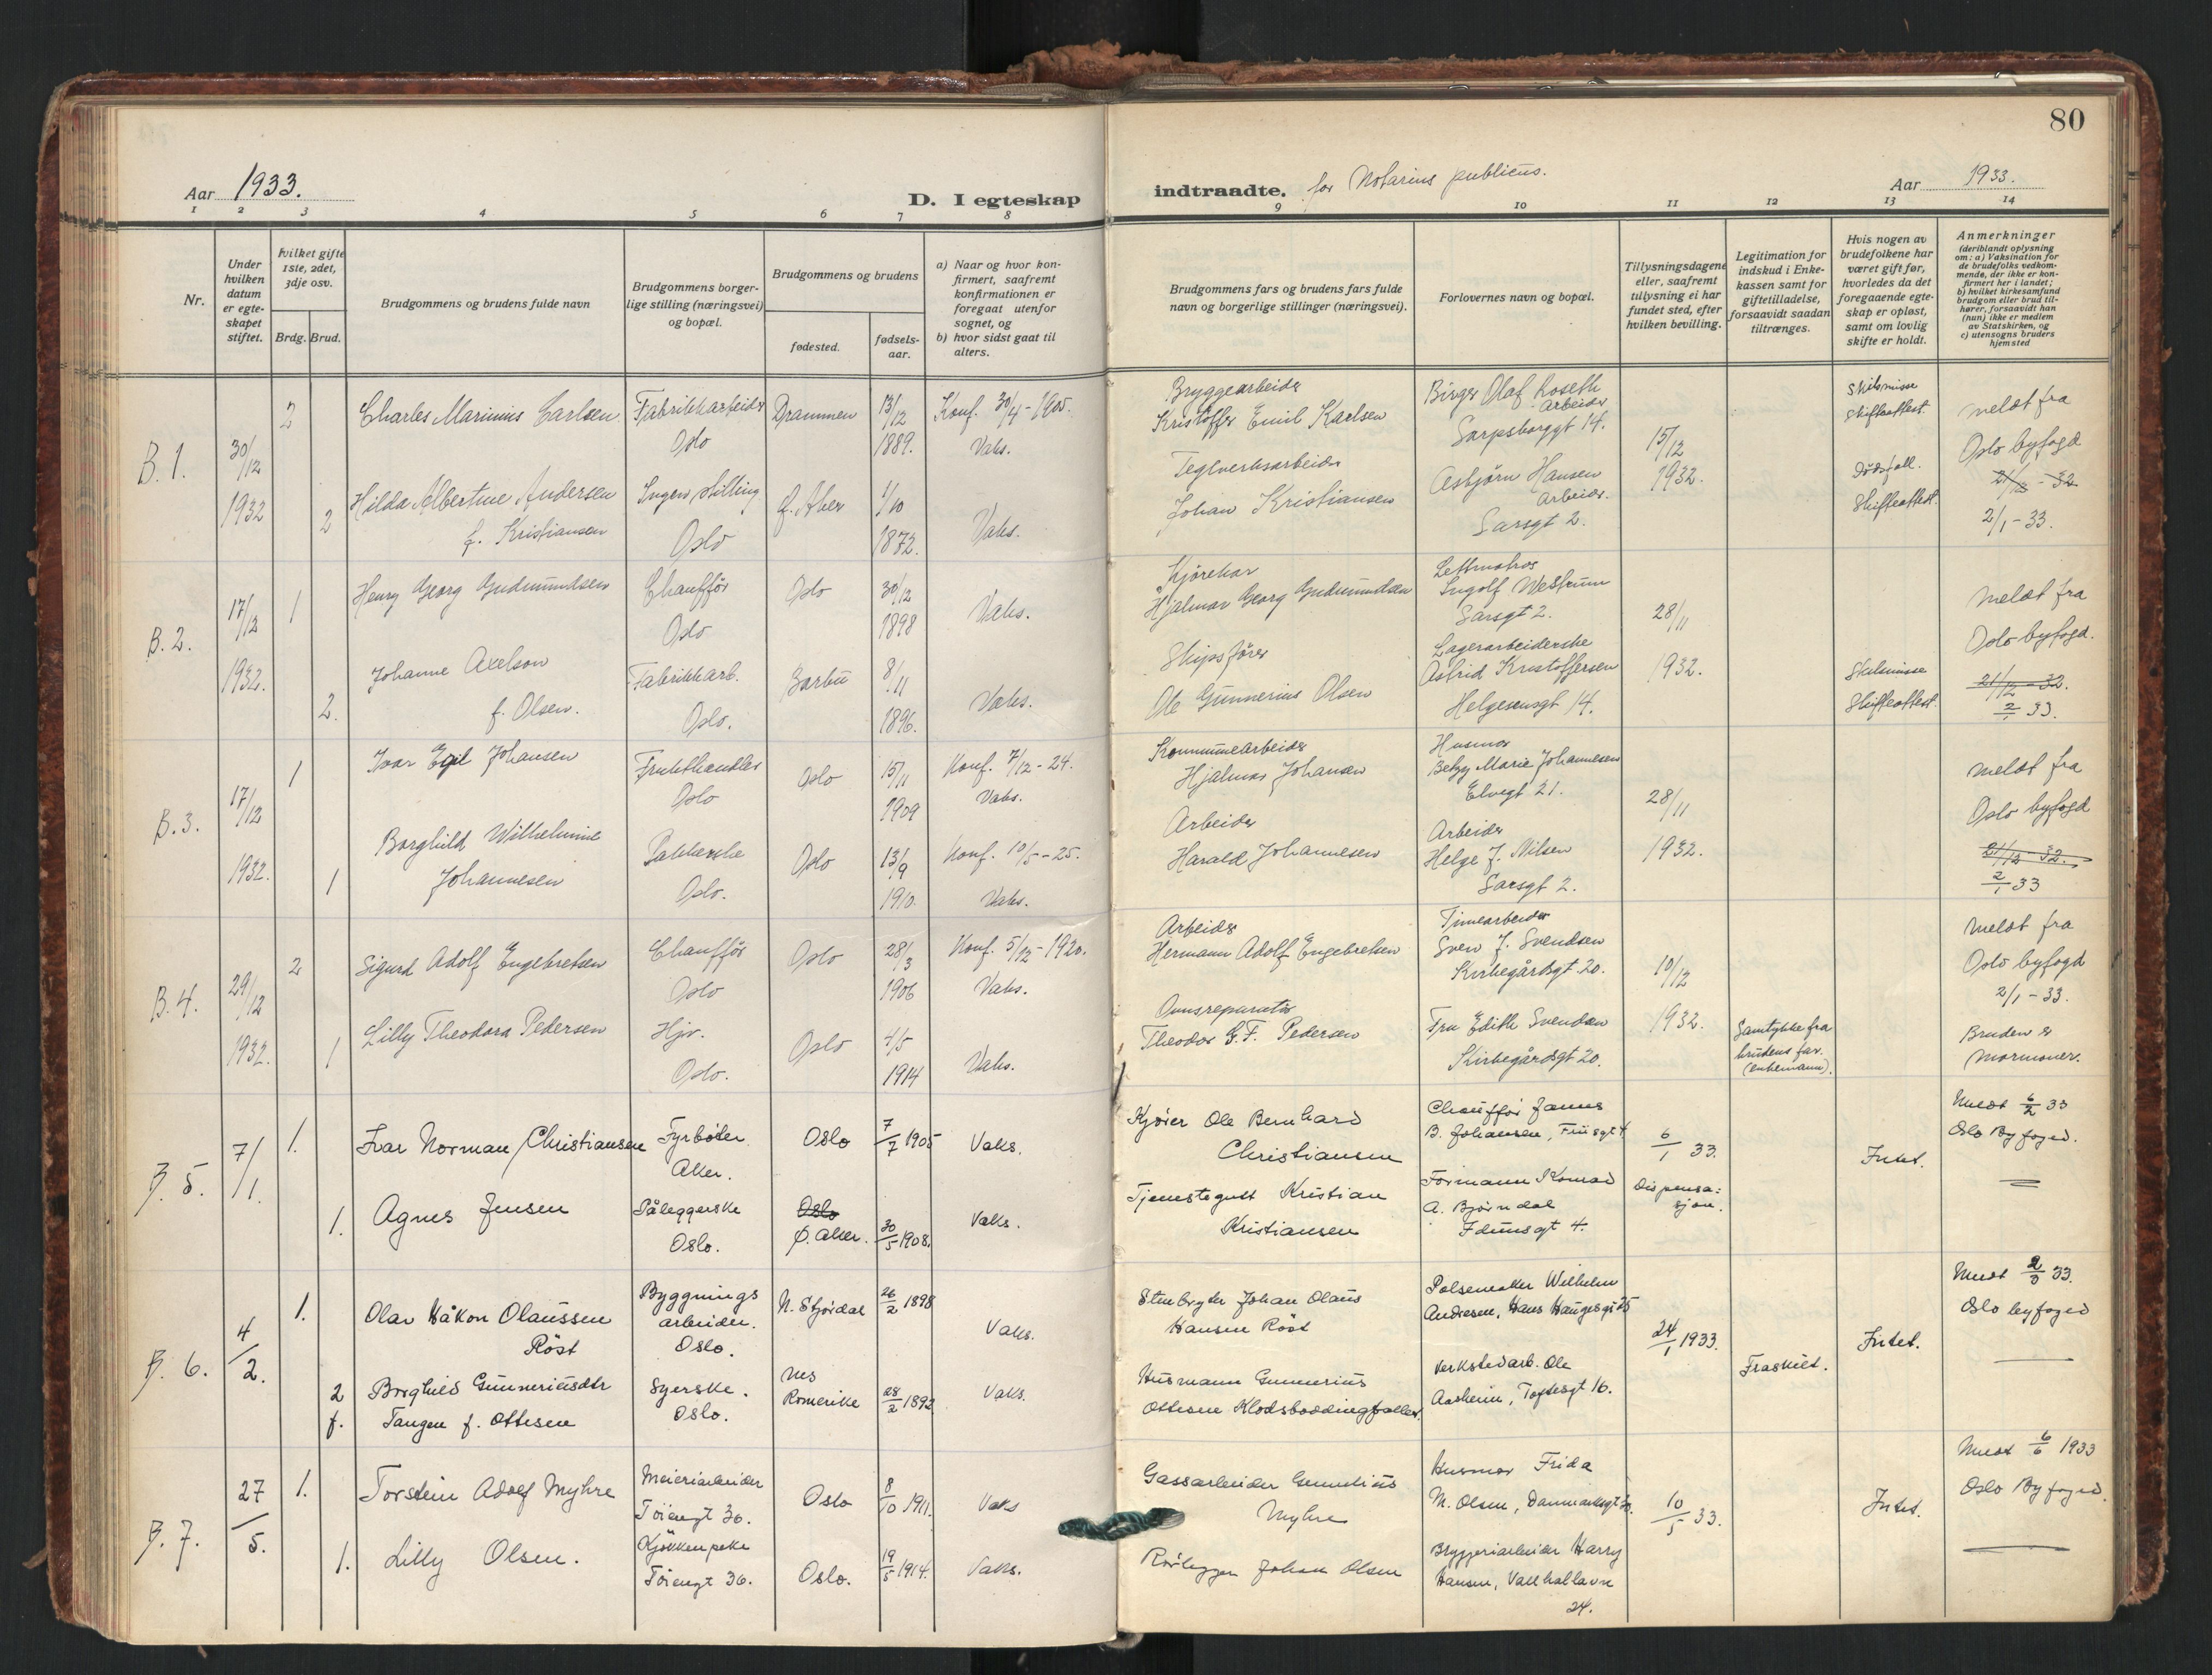 80
Aar 1933.
D. I egteskap indtraadte. for Notarius publicus.
Aar 1933.
1 2 3 4 5 6 7 8 9 10 11 12 13 14
Nr.
Under hvilken datum er egteskapet stiftet.
hvilket gifte 1ste, 2det, 3dje osv.
Brdg. Brud.
Brudgommens og brudens fulde navn
Brudgommens borgerlige stilling (næringsvei) og bopæl.
Brudgommens og brudens
fødested.
fødselsaar.
a) Naar og hvor konfirmert, saafremt konfirmationen er foregaat utenfor sognet, og
b) hvor sidst gaat til alters.
Brudgommens fars og brudens fars fulde navn og borgerlige stillinger (næringsvei).
Forlovernes navn og bopæl.
Tillysningsdagene eller, saafremt tillysning ei har fundet sted, efter hvilken bevilling.
Legitimation for indskud i Enkekassen samt for giftetilladelse, forsaavidt saadan tiltrænges.
Hvis nogen av brudefolkene har været gift før, hvorledes da det foregaaende egteskap er opløst, samt om lovlig skifte er holdt.
Anmerkninger
(deriblandt oplysning om: a) Vaksination for de brudefolks vedkommende, der ikke er konfirmert her i landet; b) hvilket kirkesamfund brudgom eller brud tilhører, forsaavidt han (hun) ikke er medlem av Statskirken, og c) utensogns bruders hjemsted
B. 1.
30/12 1932
2
Charles Marinius Carlsen
Fabrikkarbeider
Oslo
Drammen
13/12 1889.
Konf. 30/4 - 1905.
Vaks.
Bryggearbeider
Kristoffer Emil Karlsen
Birger Olaf Roseth
Arbeider
Sarpsborggt 14.
15/12 1932.
Skilsmisse
Skifteattest.
meldt fra
Oslo byfogd
21/12 - 32
2/1 - 33.
2
Hilda Albertine Andersen
f. Kristiansen
Ingen stilling
Oslo
Ø. Aker
1/10 1872.
Vaks.
Teglverksarbeider
Johan Kristiansen
Asbjørn Hansen
Arbeider.
Sarsgt 2.
Dødsfall.
Skifteattest.
B. 2.
17/12 1932.
1
Henry Georg Gudmundsen
Chauffør
Oslo
Oslo
30/12 1898
Vaks.
Kjørekar
Hjalmar Georg Gudmundsen
Lettmatros
Ingolf Westrum
Sarsgt 2.
28/11 1932.
meldt fra
Oslo byfogd.
21/12 - 32.
2/1 33.
2.
Johanne Axelson
f. Olsen.
Fabrikkarb.
Oslo.
Barbu
8/11 1896.
Vaks.
Skipsfører
Ole Gunnerius Olsen
Lagerarbeiderske
Astrid Kristoffersen
Helgesensgt 14.
Skilsmisse
Skifteattest.
B. 3.
17/12 1932.
1
Ivar Egil Johansen
Frukthandler
Oslo
Oslo
15/11 1909
Konf. 7/12 - 24.
Vaks.
Kommunearbeider
Hjalmar Johansen
Husmor
Betzy Marie Johannesen
Elvegt 21.
28/11 1932.
meldt fra
Oslo byfogd
21/12 - 32.
2/1 33
1
Borghild Wilhelmine
Johannesen
Pakkerske
Oslo.
Oslo
13/9 1910.
Konf. 10/5 - 25.
Vaks.
Arbeider
Harald Johannesen
Arbeider
Helge J. Nilsen
Sarsgt 2.
B. 4.
29/12 1932.
2
Sigurd Adolf Engebretsen
Chauffør
Oslo
Oslo
28/3 1906
Konf. 5/12 - 1920.
Vaks.
Arbeider
Hermann Adolf Engebretsen
Timearbeider
Sven J. Svendsen
Kirkegårdsgt. 20.
10/12 1932.
meldt fra
Oslo byfogd
2/1 - 33.
1
Lilly Theodora Pedersen
Hjv.
Oslo.
Oslo
4/5 1914
Vaks.
Ovnsreparatør
Theodor G. F. Pedersen
Fru Edith Svendsen
Kirkegårdsgt 20.
Samtykke fra
brudens far.
(enkemann).
Bruden er
Mormoner.
B. 5.
7/1.
1.
Ivar Norman Christiansen
Fyrbøter.
Aker.
Oslo
7/7 1905
Vaks.
Kjører Ole Bernhard
Christiansen
Chauffør Janus
B. Johansen, Friisgt 4
6/1 33.
Dispensasjon.
Intet.
Meldt 6/2 33
Oslo Byfoged.
1.
Agnes Jensen
Påleggerske
Oslo.
Oslo
Ø. Aker.
30/5 1908.
Vaks.
Tjenestegutt Kristian
Kristiansen
Formann Konrad
A. Bjørndal
Idunsgt 4.
B. 6.
4/2.
1.
Olav Håkon Olaussen
Röst
Byggnings
arbeider.
Oslo.
N. Stjørdal
26/2 1898
Vaks.
Stenbryter Johan Olaus
Hansen Röst
Pølsemaker Wilhelm
Andresen, Hans Haugesgt 25
24/1 1933.
Fraskilt.
Intet.
Meldt 2/3 33.
Oslo byfoged
2
f.
Borghild Gunneriusdtr
Tangen f. Ottesen
Syerske.
Oslo.
Nes
Romerike
28/2 1892
Vaks.
Husmann Gunnerius
Ottesen
Verkstedarb. Ole
Aasheim, Toftesgt 16.
B. 7.
27/5.
1.
Torstein Adolf Myhre
Meieriarbeider
Töiengt 36.
Oslo
8/10 1911.
Vaks
Gassarbeider
Myhre
Husmor Frida
M. Olsen, Danmarksgt
10/5 33.
Intet.
Meldt 6/6 1933
Oslo Byfoged.
1.
Lilly Olsen.
Kjøkkenpike
Töiengt 36.
Oslo.
19/5 1914.
Vaks.
Rørlegger Johan Olsen
Bryggeriarbeider Harry
Hansen, Vallhallavn
24.